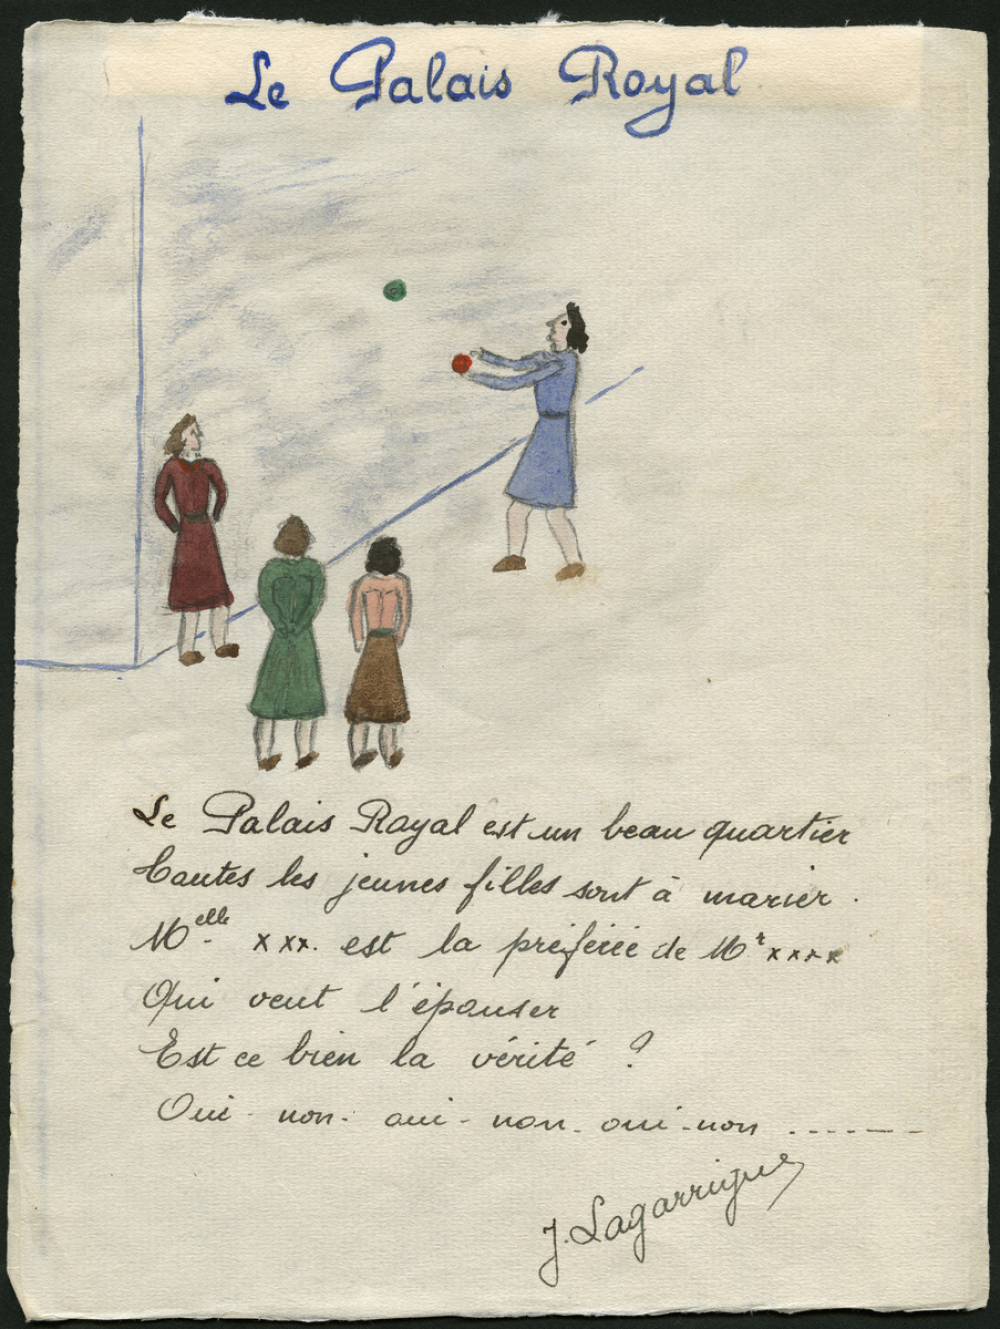 Le Palais Royal
Le Palais Royal est un beau quartier
Toutes les jeunes filles sont à marier.
Melle xxx. est la préférée de Mr xxxx
Qui veut l'épouser
Est ce bien la vérité ?
Oui - non - oui - non - oui - non .......
J. Lagarrigue